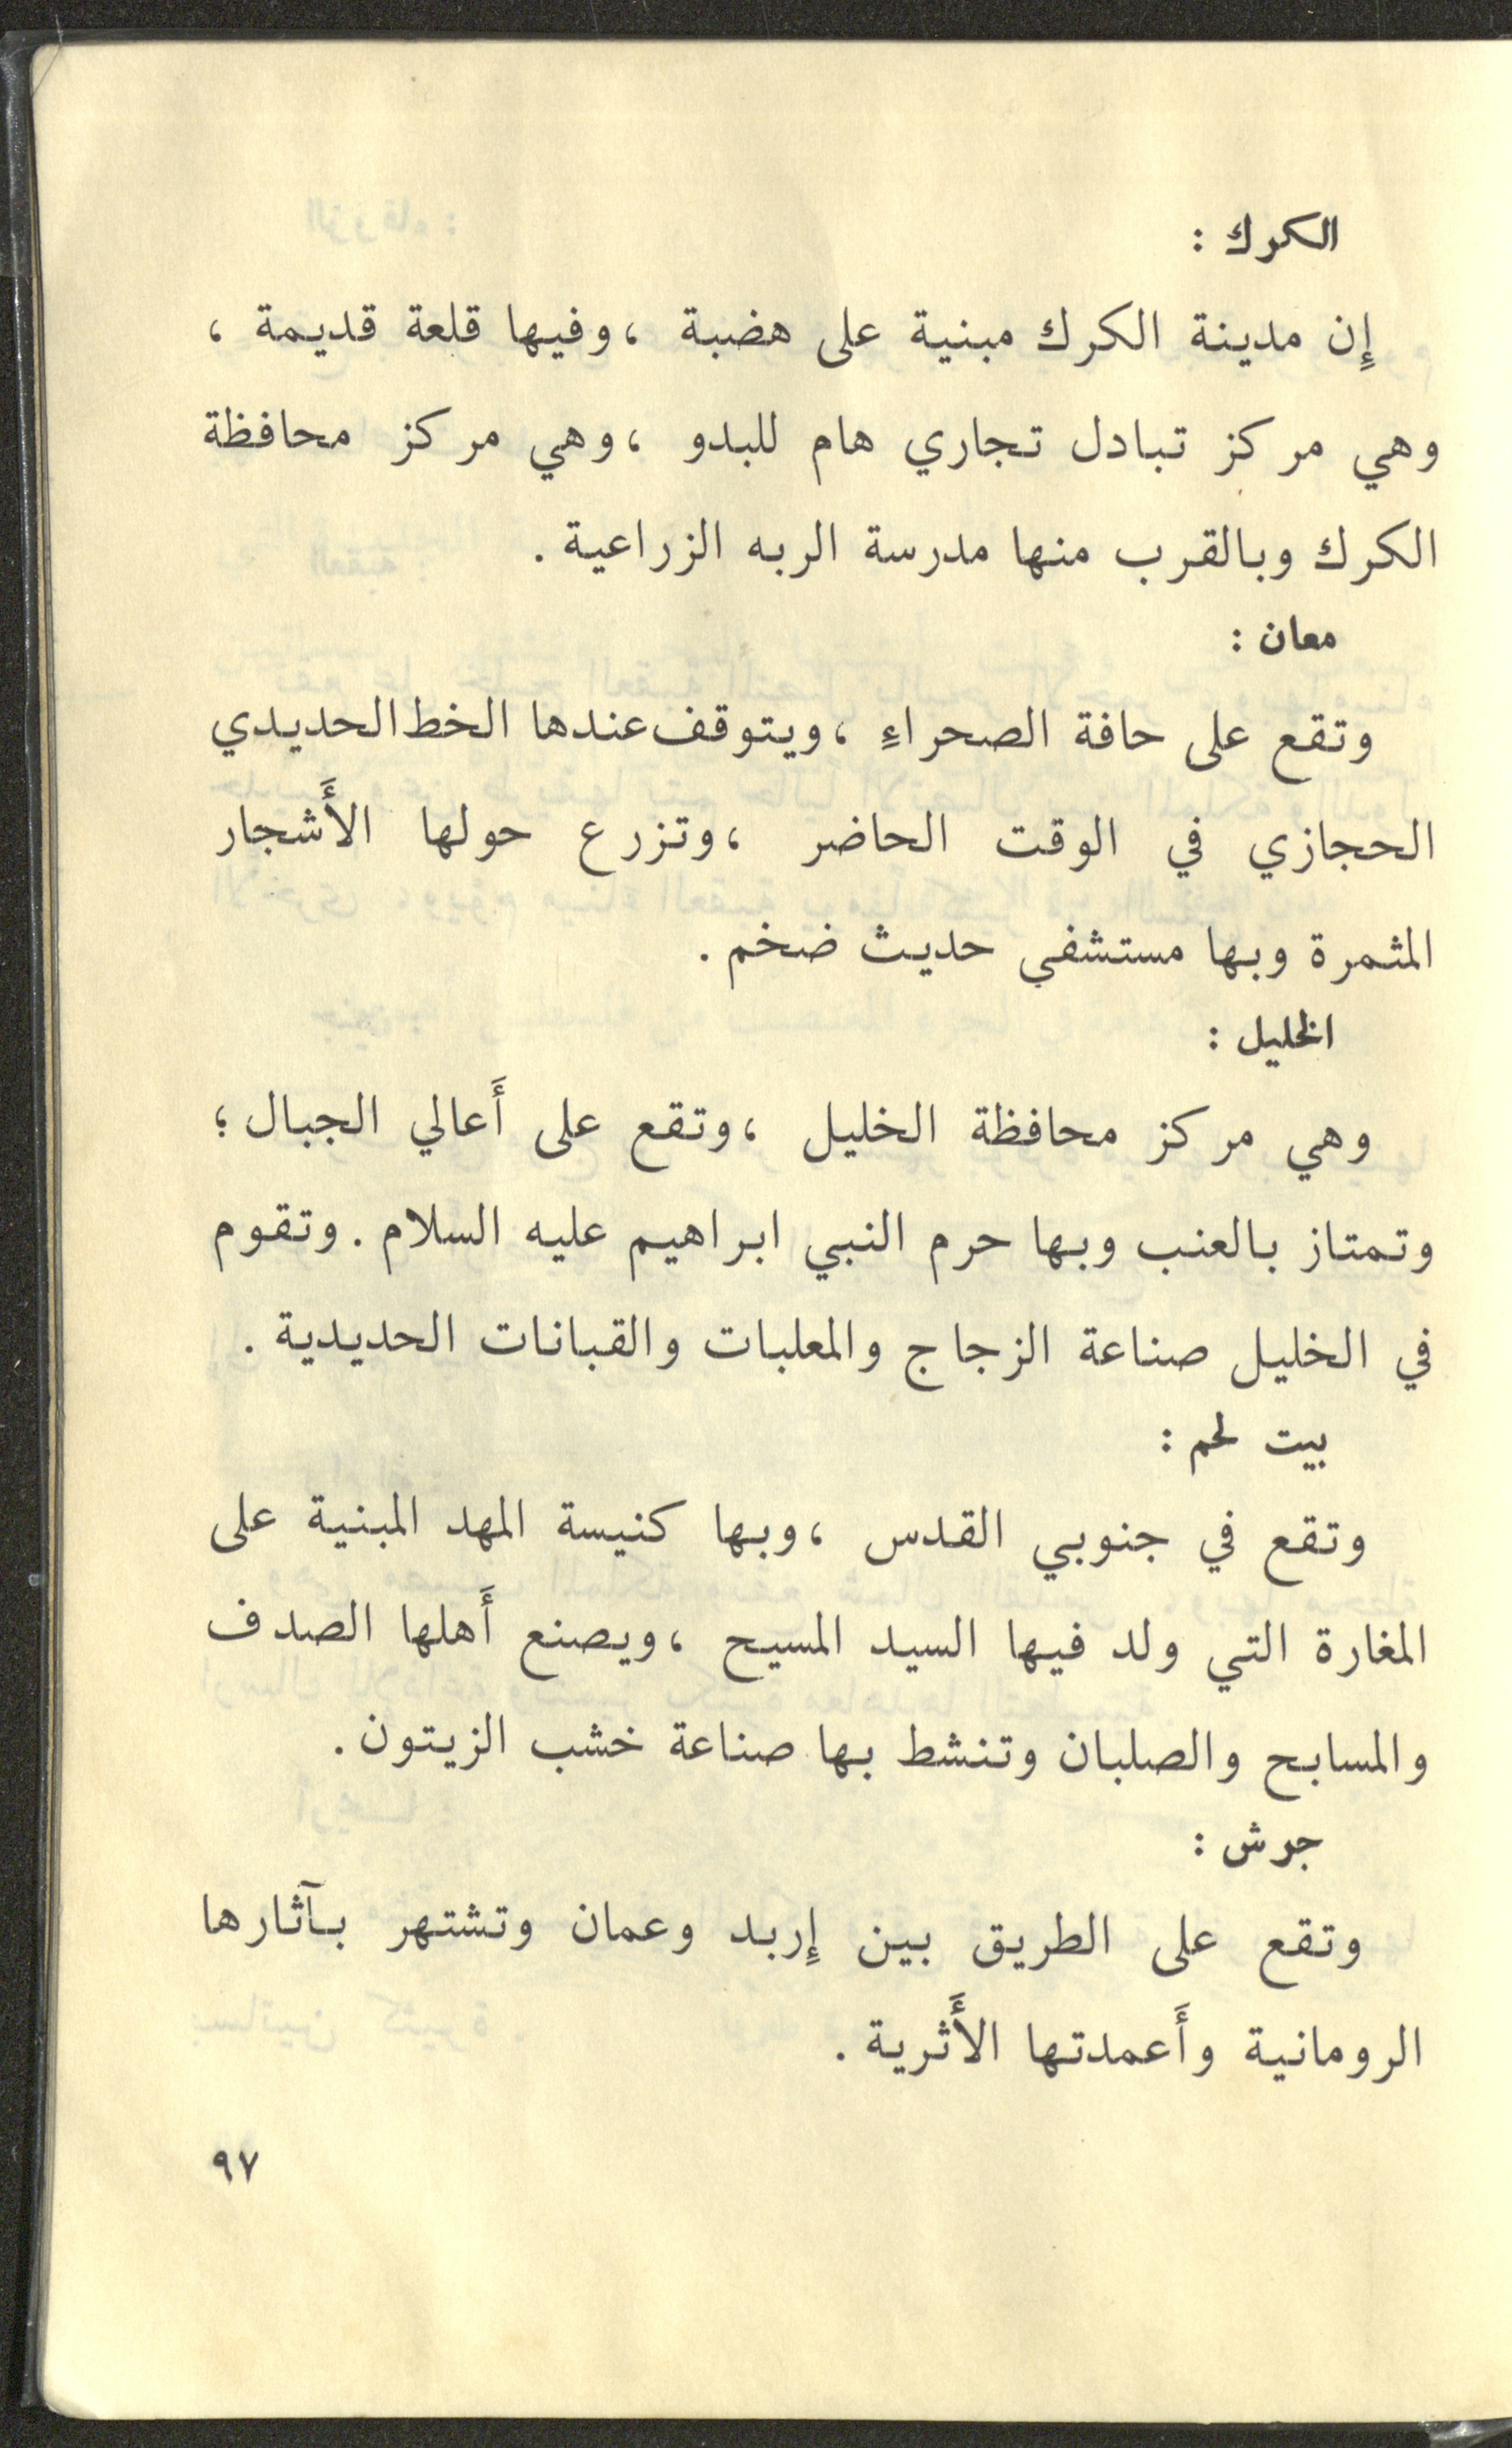 الكرك :
إِن مدينة الكرك مبنية على هضبة ، وفيها قلعة قديمة ،
وهي مركز تبادل تجاري هام للبدو ، وهي مركز محافظة
الكرك وبالقرب منها مدرسة الربه الزراعية .
معان :
وتقع على حافة الصحراءِ ، ويتوقف عندها الخط الحديدي
الحجازي في الوقت الحاضر ، وتزرع حولها الأَشجار
المثمرة وبها مستشفى حديث ضخم .
الخليل :
وهي مركز محافظة الخليل ، وتقع على أَعالي الجبال ؛
وتمتاز بالعنب وبها حرم النبي ابراهيم عليه السلام . وتقوم
في الخليل صناعة الزجاج والمعلبات والقبانات الحديدية .
بيت لحم :
وتقع في جنوبي القدس ، وبها كنيسة المهد المبنية على
المغارة التي ولد فيها السيد المسيح ، ويصنع أَهلها الصدف
والمسابح والصلبان وتنشط بها صناعة خشب الزيتون .
جرش :
وتقع على الطريق بين إِربد وعمان وتشتهر بآثارها
الرومانية وأَعمدتها الأَثرية .
٩٧